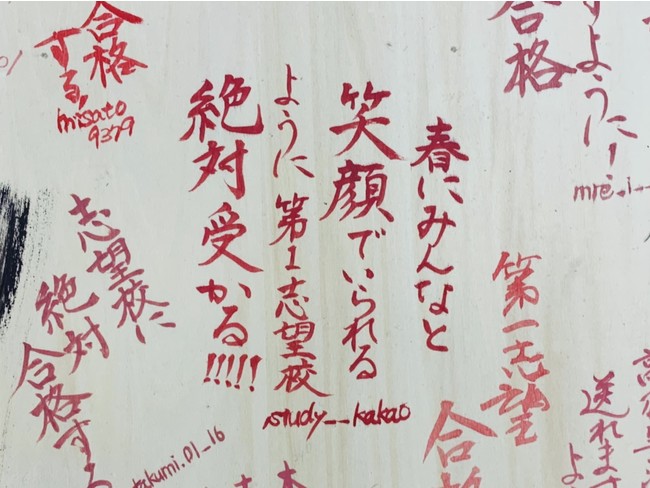 合格
する!
misato
9379
合格
すように!
mre_i_
春にみんなと
笑顔でいられる
ように 第1志望校
絶対 受かる!!!!!
study__kakao
志望校に
絶対
合格する
takumi.01_16
第一志望
合格
送れます
よ